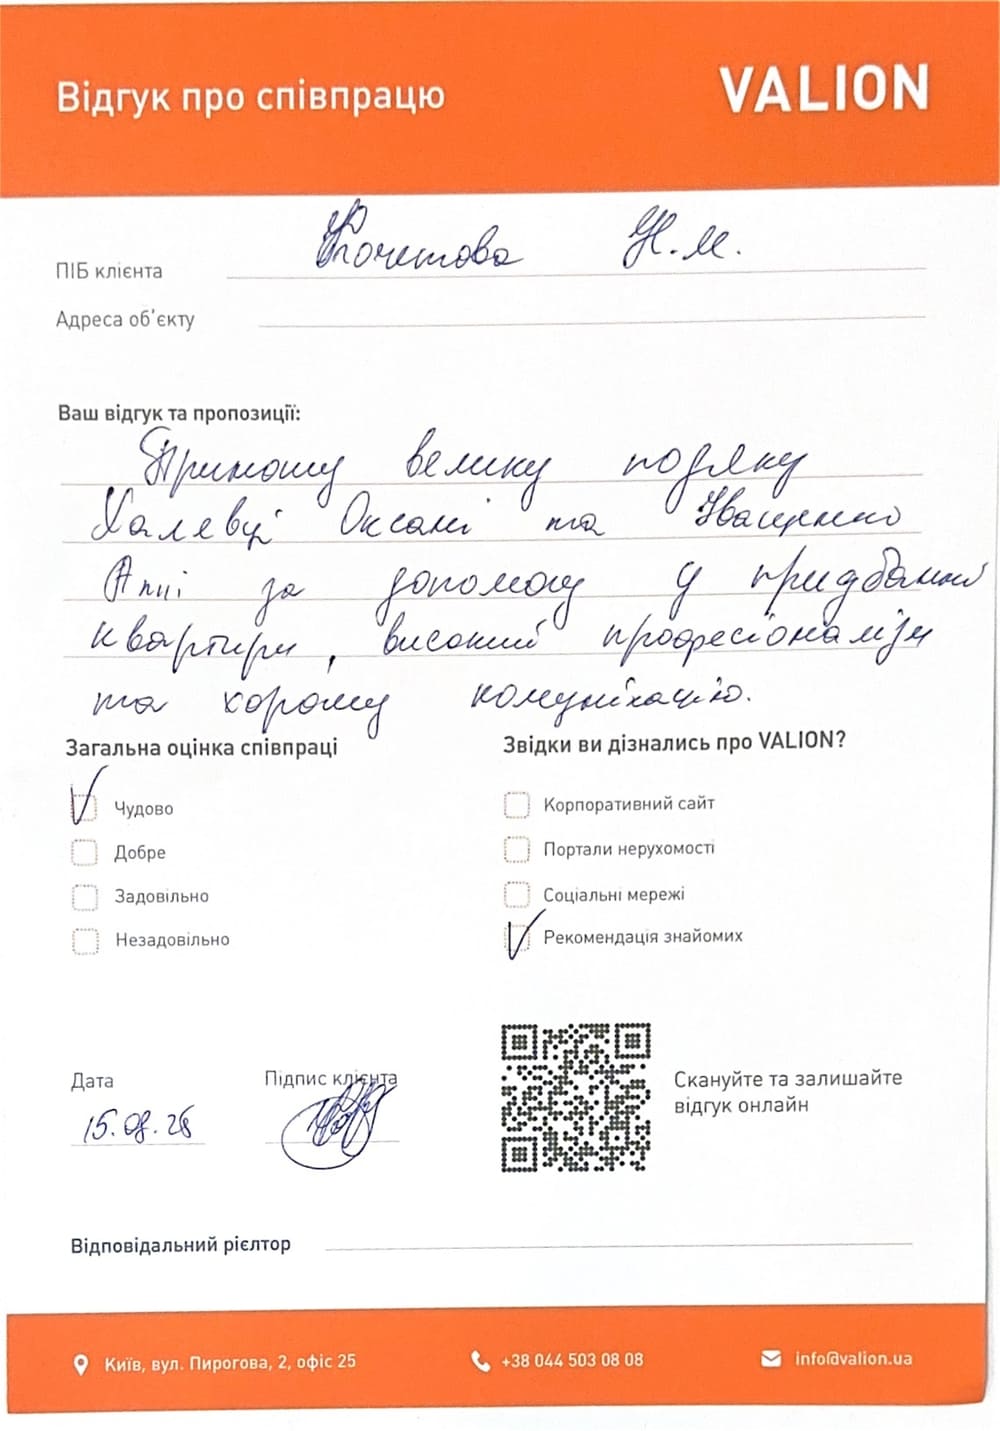 Відгук про співпрацю
VALION
ПІБ клієнта Кочетова Н.М.
Адреса об'єкту
Ваш відгук та пропозиції:
Приношу велику подяку
Халевці Оксані та Іващенко
Анні за допомогу у придбанні
квартири, високий професіоналізм
та хорошу комунікацію.
Загальна оцінка співпраці
Чудово
Добре
Задовільно
Незадовільно
Звідки ви дізнались про VALION?
Корпоративний сайт
Портали нерухомості
Соціальні мережі
Рекомендація знайомих
Дата
Підпис клієнта
Скануйте та залишайте
відгук онлайн
Відповідальний рієлтор
Київ, вул. Пирогова, 2, офіс 25
+38 044 503 08 08
info@valion.ua